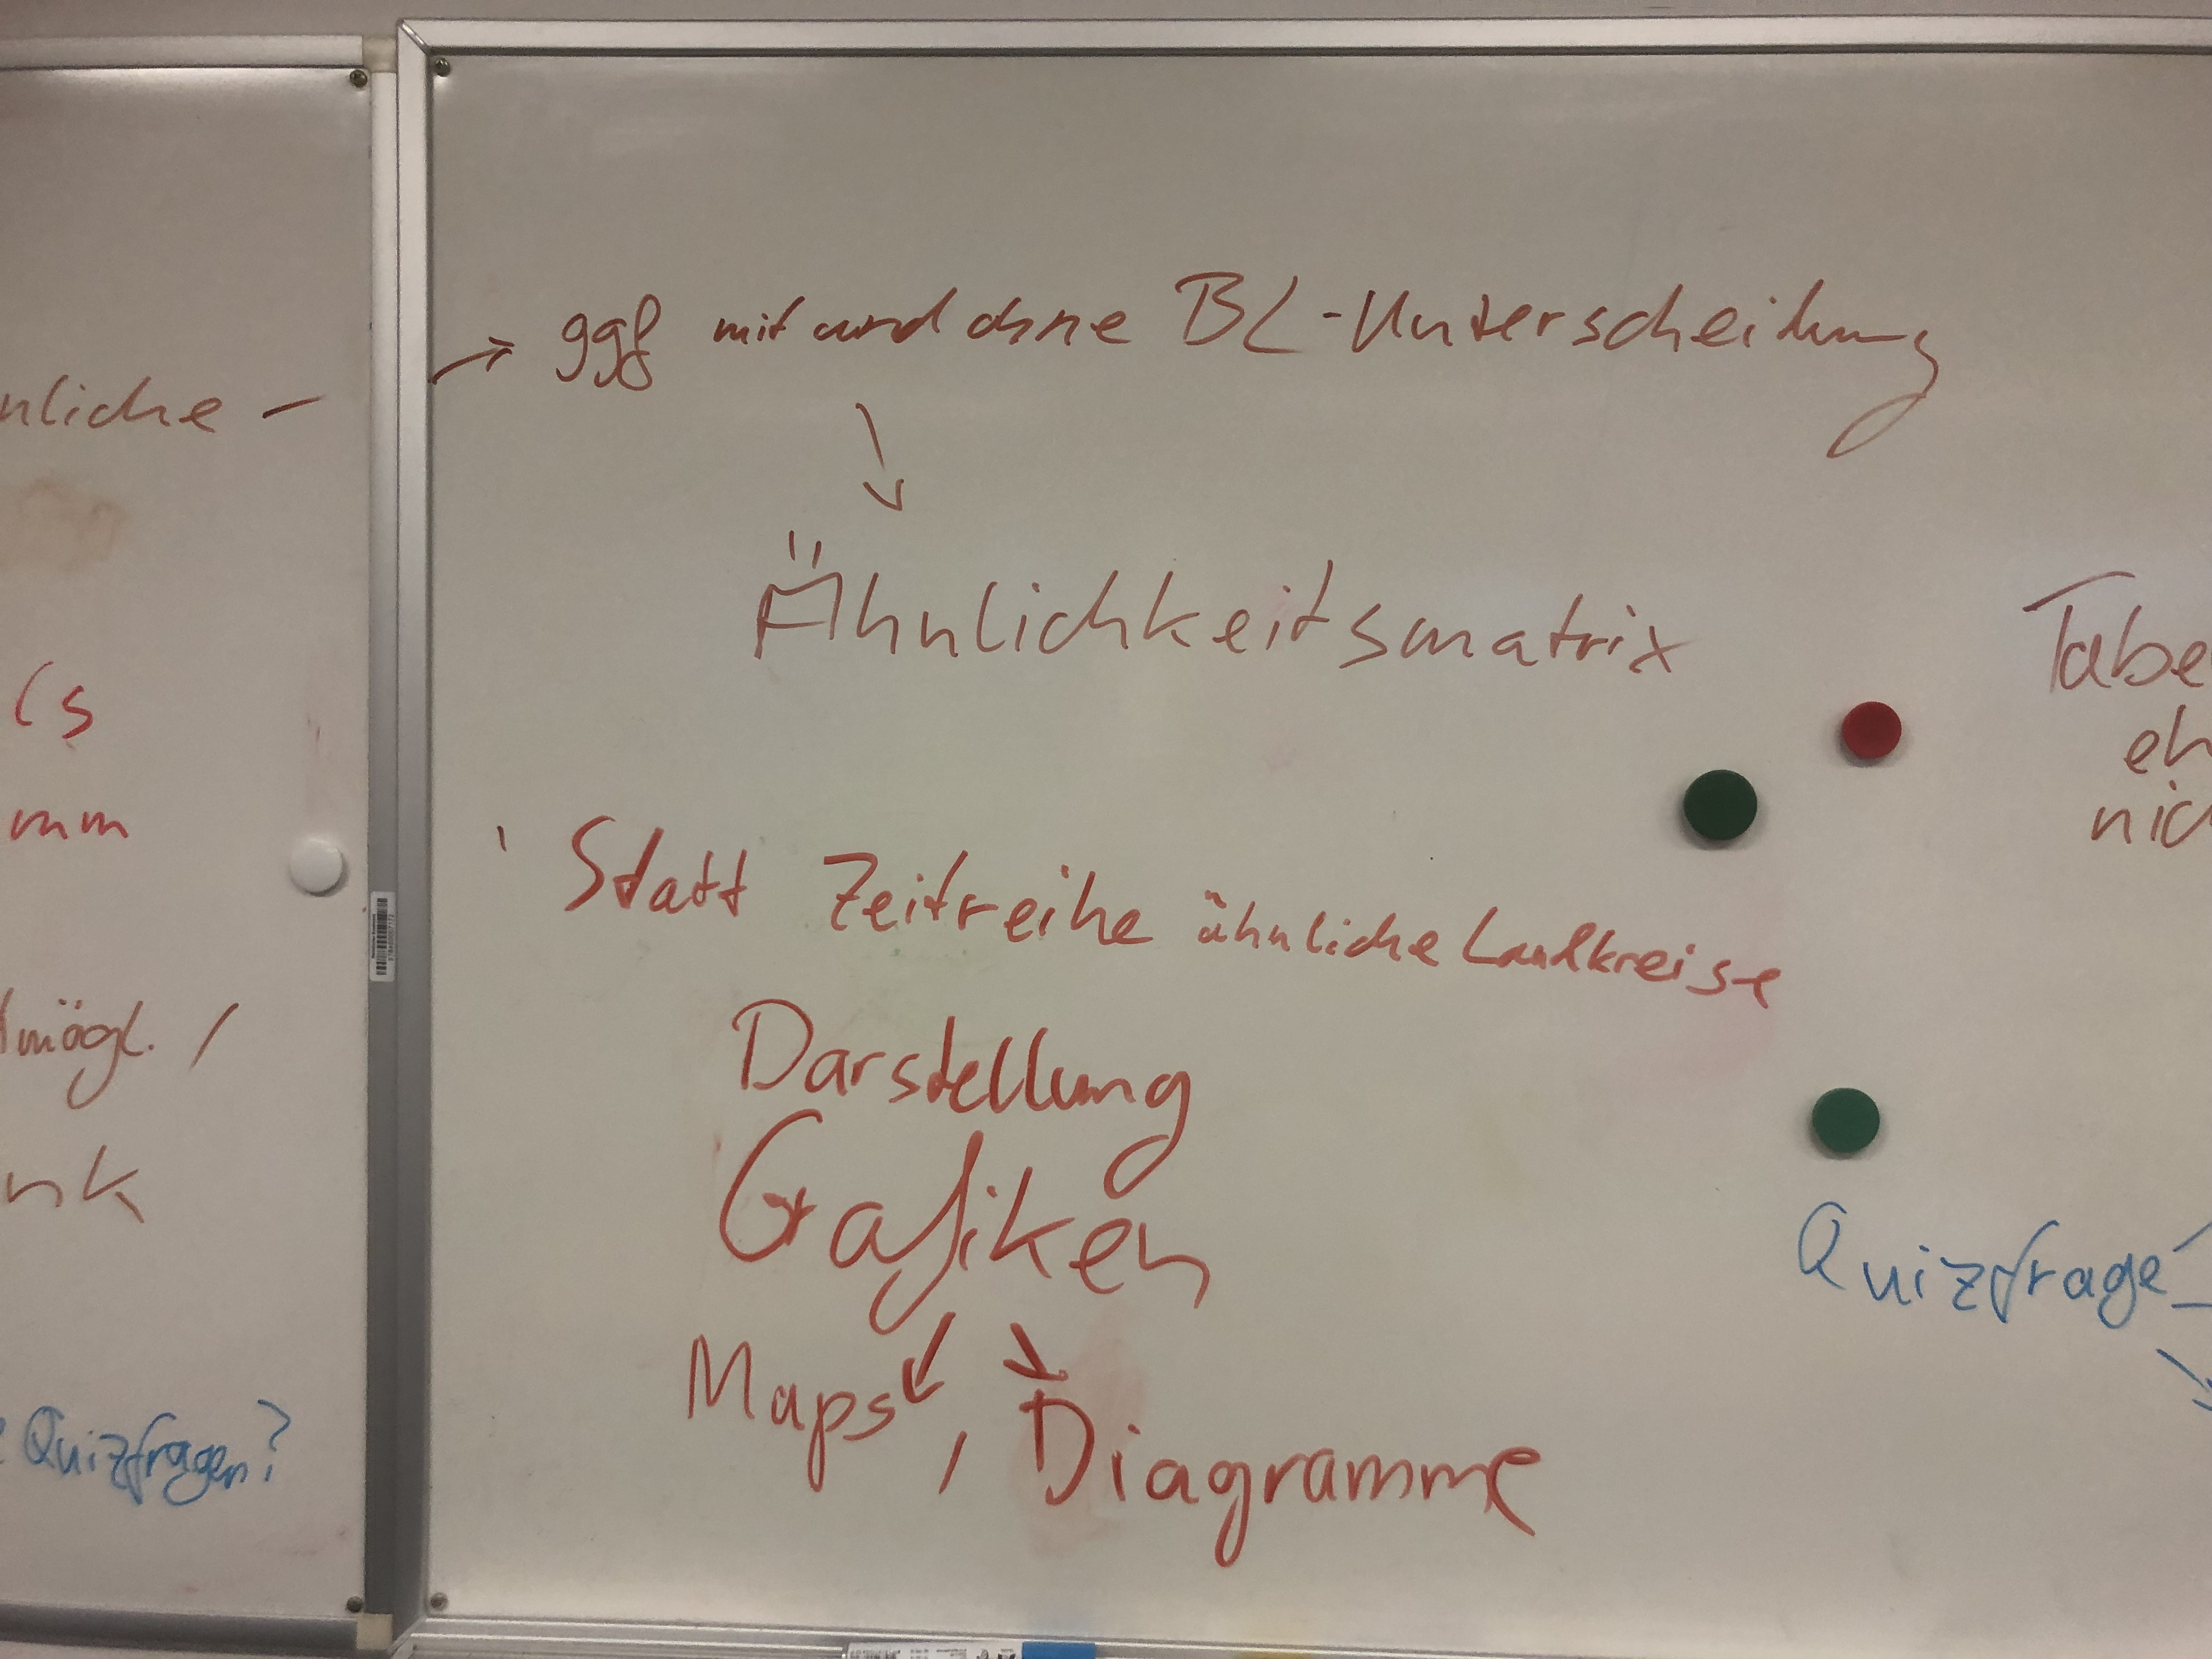 nliche –
(s
mm
mögl. /
nk
Quizfragen?
→ ggf mit und ohne BL-Unterscheidung
↓
Ähnlichkeitsmatrix
Statt Zeitreihe ähnliche Landkreise
Darstellung
Grafiken
Maps, Diagramme
Tabe
eh
nic
Quizfrage